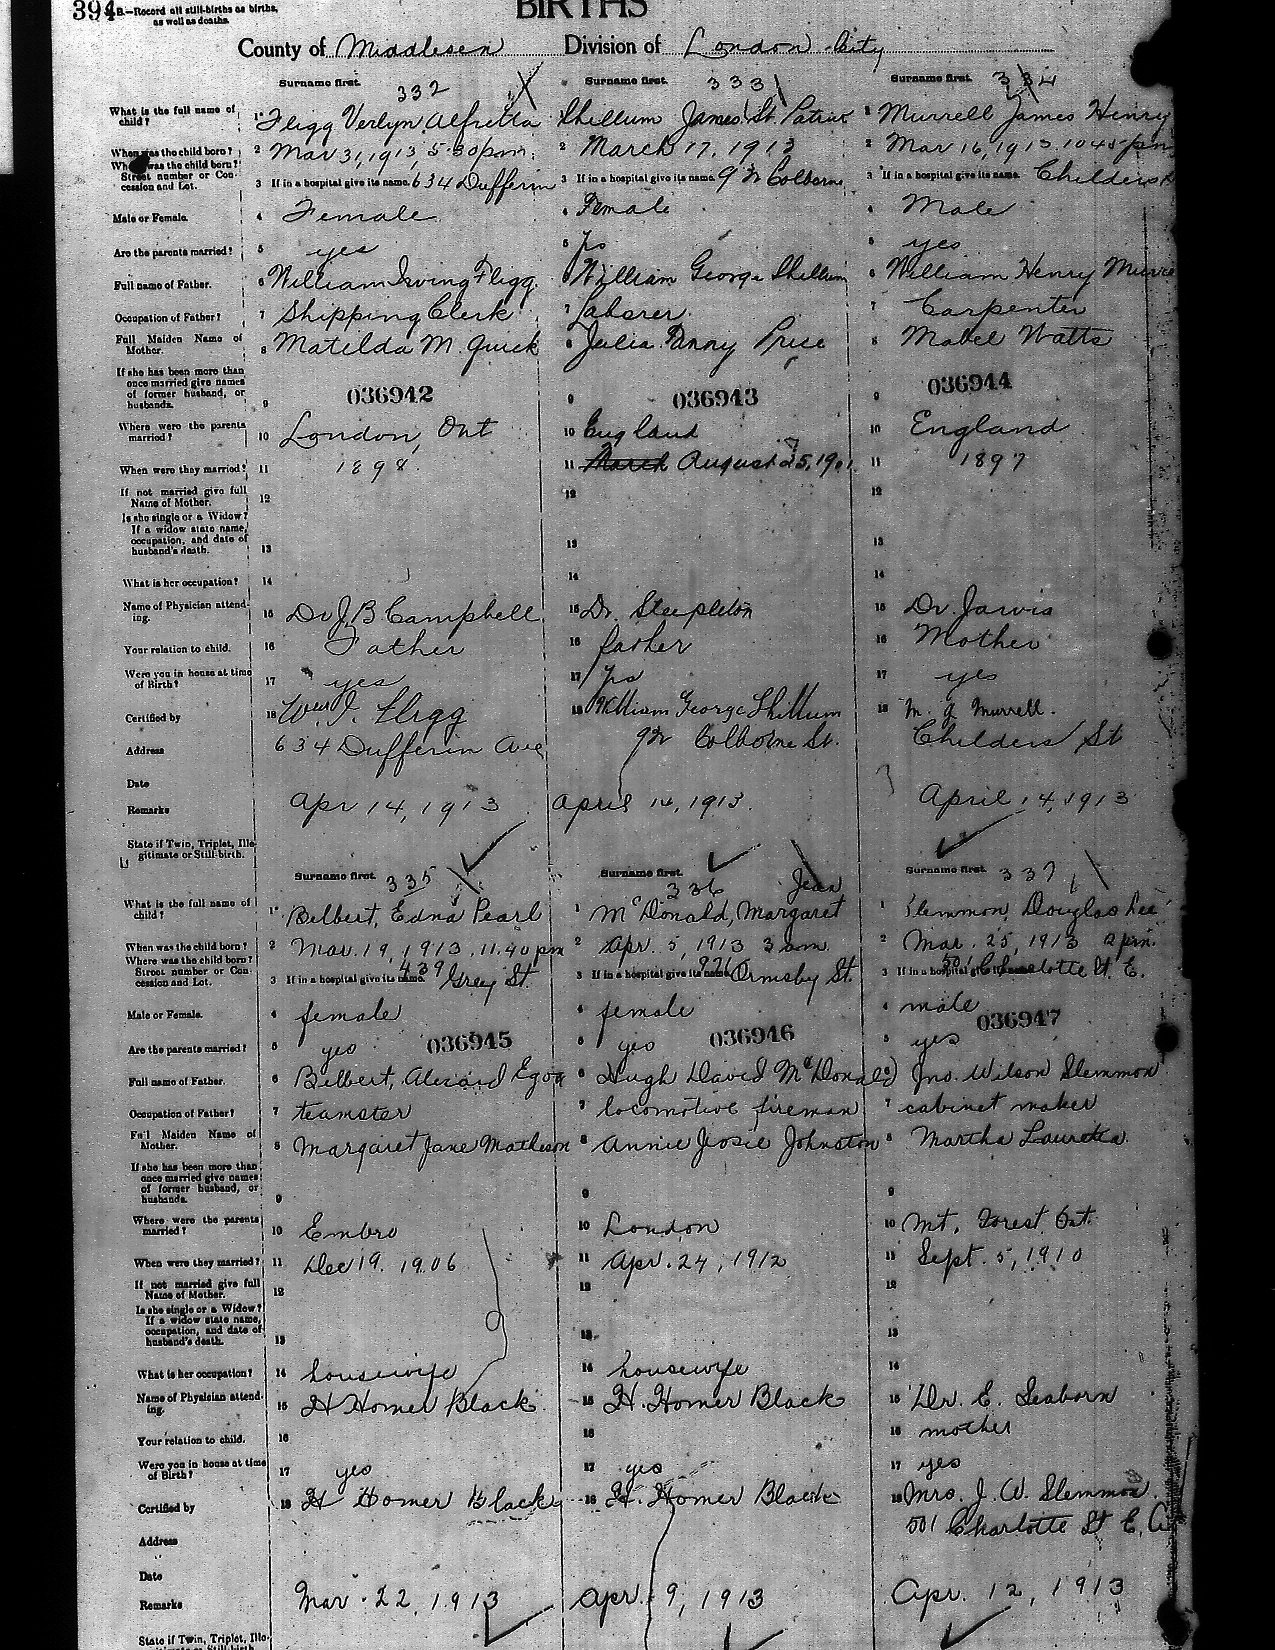 394
B.—Record all still-births as births,
as well as deaths.
BIRTHS
County of Middlesex Division of London City
Surname first. 332
Surname first. 333
Surname first. 334
What is the full name of child? 1 Fligg Verlyn Alfretta
1 Shillum James St. Patrick
1 Murrell James Henry
When was the child born? 2 Mar 31, 1913 5.30 pm.
2 March 17, 1913
2 Mar 16, 1913 10 45 pm
Where was the child born? Street number or Concession and Lot. 3 If in a hospital give its name. 634 Dufferin
3 If in a hospital give its name. Colborne
3 If in a hospital give its name. Childers
Male or Female. 4 Female
4 Female
4 Male
Are the parents married? 5 yes
5 yes
5 yes
Full name of Father. 6 William Irving Fligg
6 William George Shillum
6 William Henry
Occupation of Father? 7 Shipping Clerk
7 Laborer
7 Carpenter
Full Maiden Name of Mother. 8 Matilda M. Quick
8 Julia Fanny Price
8 Mabel Watts
If she has been more than once married give names of former husband, or husbands. 9
9
9
036942
036943
036944
Where were the parents married? 10 London, Ont
10 England
10 England
When were they married? 11 1898.
11 March August 25, 1901
11 1897
If not married give full Name of Mother. 12
12
12
Is she single or a Widow? If a widow state name, occupation, and date of husband's death. 13
13
13
What is her occupation? 14
14
14
Name of Physician attending. 15 Dr J. B. Campbell
15 Dr. Stapleton
15 Dr. Jarvis
Your relation to child. 16 Father
16 father
16 Mother
Were you in house at time of Birth? 17 yes
17 yes
17 yes
Certified by 18 Wm I. Fligg
18 William George Shillum
18 M. J Murrell.
Address 634 Dufferin Ave
Colborne St.
Childers St
Date
Remarks Apr 14, 1913
April 14, 1913.
April 14, 1913
State if Twin, Triplet, Illegitimate or Still-birth.
Surname first. 335
Surname first. 336
Surname first. 337
What is the full name of child? 1 Belbert, Edna Pearl
1 McDonald, Margaret Jean
1 Slemmon, Douglas Lee
When was the child born? 2 Mar. 19, 1913. 11.40 pm
2 Apr. 5, 1913 3 am.
2 Mar. 25, 1913 2 pm.
Where was the child born? Street number or Concession and Lot. 3 If in a hospital give its name. 439 Grey St.
3 If in a hospital give its name. 976 Ormsby St.
3 If in a hospital give its name. 501 Charlotte St. E.
Male or Female. 4 female
4 female
4 male
036945
036946
036947
Are the parents married? 5 yes
5 yes
5 yes
Full name of Father. 6 Belbert,
6 Hugh David McDonald
6 Jno. Wilson Slemmon
Occupation of Father? 7 teamster
7 locomotive fireman
7 cabinet maker
Full Maiden Name of Mother. 8 Margaret Jane Matheson
8 Annie Josie Johnston
8 Martha Lauretta.
If she has been more than once married give names of former husband, or husbands. 9
9
9
Where were the parents married? 10 Embro
10 London
10 Mt. Forest Ont.
When were they married? 11 Dec 19. 1906
11 Apr. 24, 1912
11 Sept. 5, 1910
If not married give full Name of Mother. 12
12
12
Is she single or a Widow? If a widow state name, occupation, and date of husband's death. 13
13
13
What is her occupation? 14 housewife
14 housewife
14
Name of Physician attending. 15 H Homer Black
15 H. Homer Black
15 Dr. E. Seaborn
Your relation to child. 16
16
16 mother
Were you in house at time of Birth? 17 yes
17 yes
17 yes
Certified by 18 H Homer Black
18 H. Homer Black
18 Mrs. J. W. Slemmon.
Address
501 Charlotte St E.
Date
Remarks Mar. 22, 1913
Apr. 9, 1913
Apr. 12, 1913
State if Twin, Triplet, Ille-